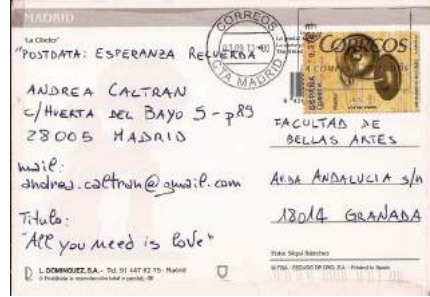 MADRID
"La Cibeles"
"POSTDATA: ESPERANZA RECUERDA"
ANDREA CALTRAN
C/HUERTA DEL BAYO 5 - p89
28005 MADRID
mail:
andrea.caltran@gmail.com
Titulo:
"All you need is love"
L. DOMINGUEZ, S.A. - Tel. 91 447 82 75 - Madrid
CORREOS
CTA MADRID
CORREOS
ESPAÑA
FACULTAD DE
BELLAS ARTES
AVDA ANDALUCIA s/n
18014 GRANADA
Foto: Sigui Sánchez
© FISA - ESCUDO DE ORO, S.A. - Printed in Spain